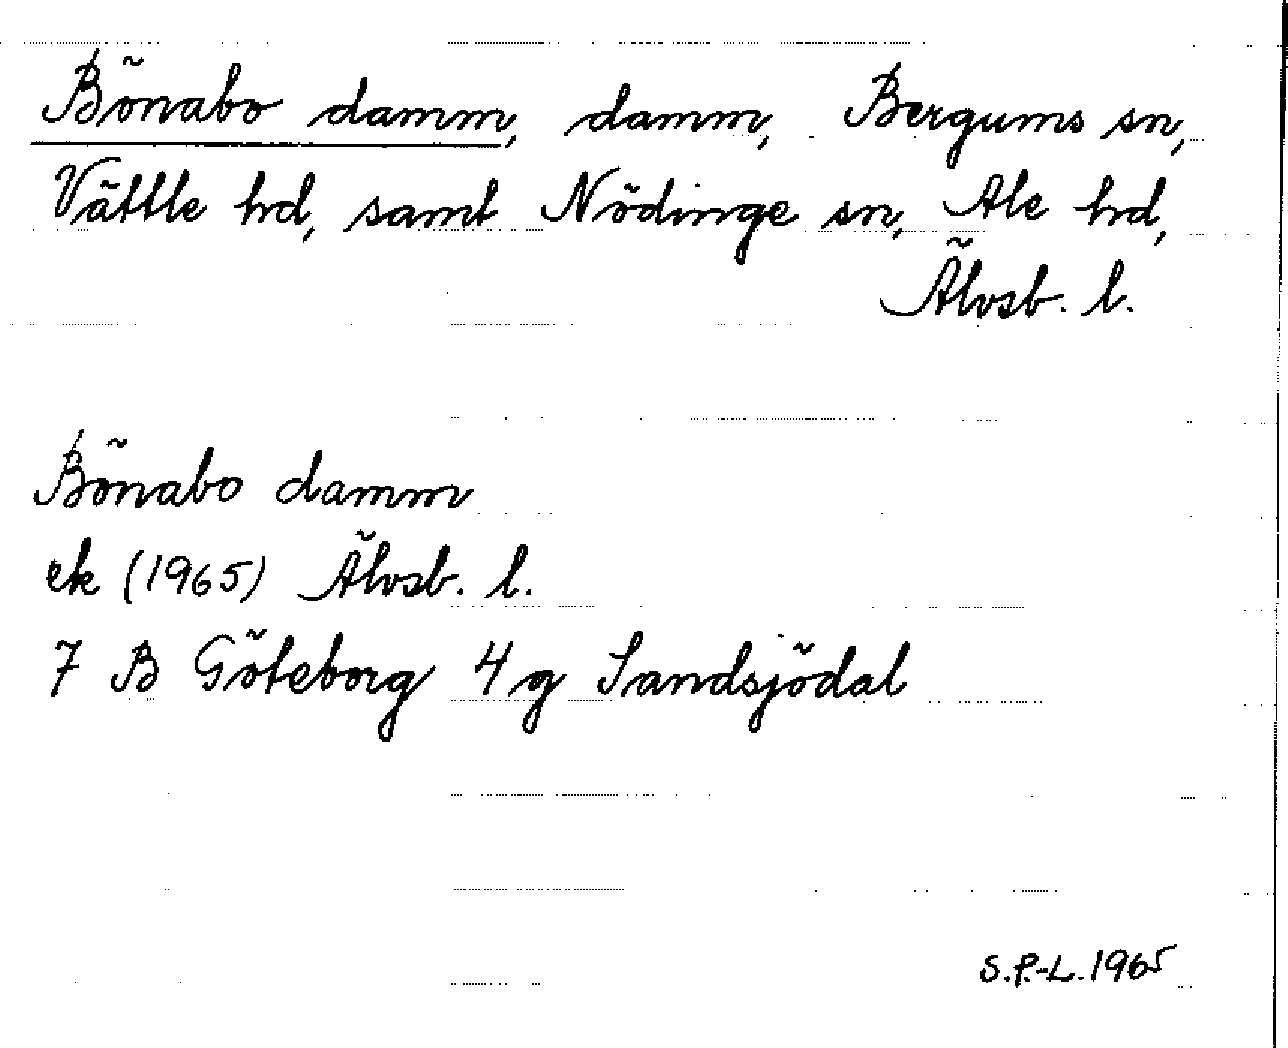 Bönabo damm, damm, Bergums sn,
Vättle hd, samt Nödinge sn, Ale hd,
Älvsb. l.
Bönabo damm
ek (1965) Älvsb. l.
7 B Göteborg 4 g Sandsjödal
S.P.-L. 1965